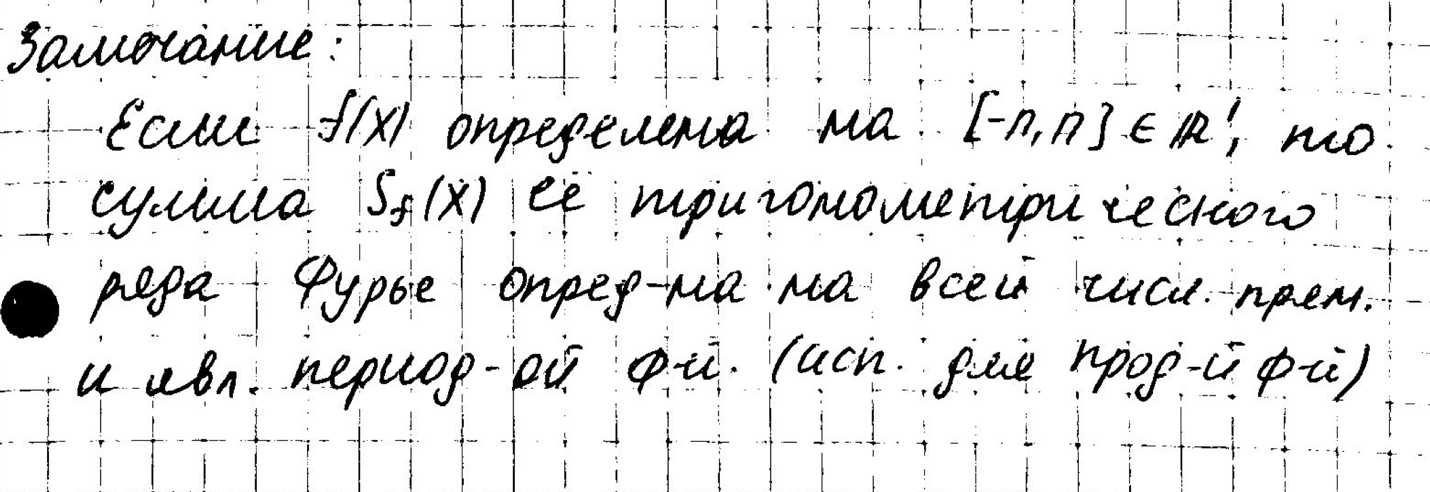 Замечание:
Если f(x) определена на [-π, π] ∈ ℝ¹, то
сумма S_f(x) её тригонометрического
ряда Фурье опред-на на всей числ. прям.
и явл. период-ой ф-й. (исп. для прод-й ф-й)